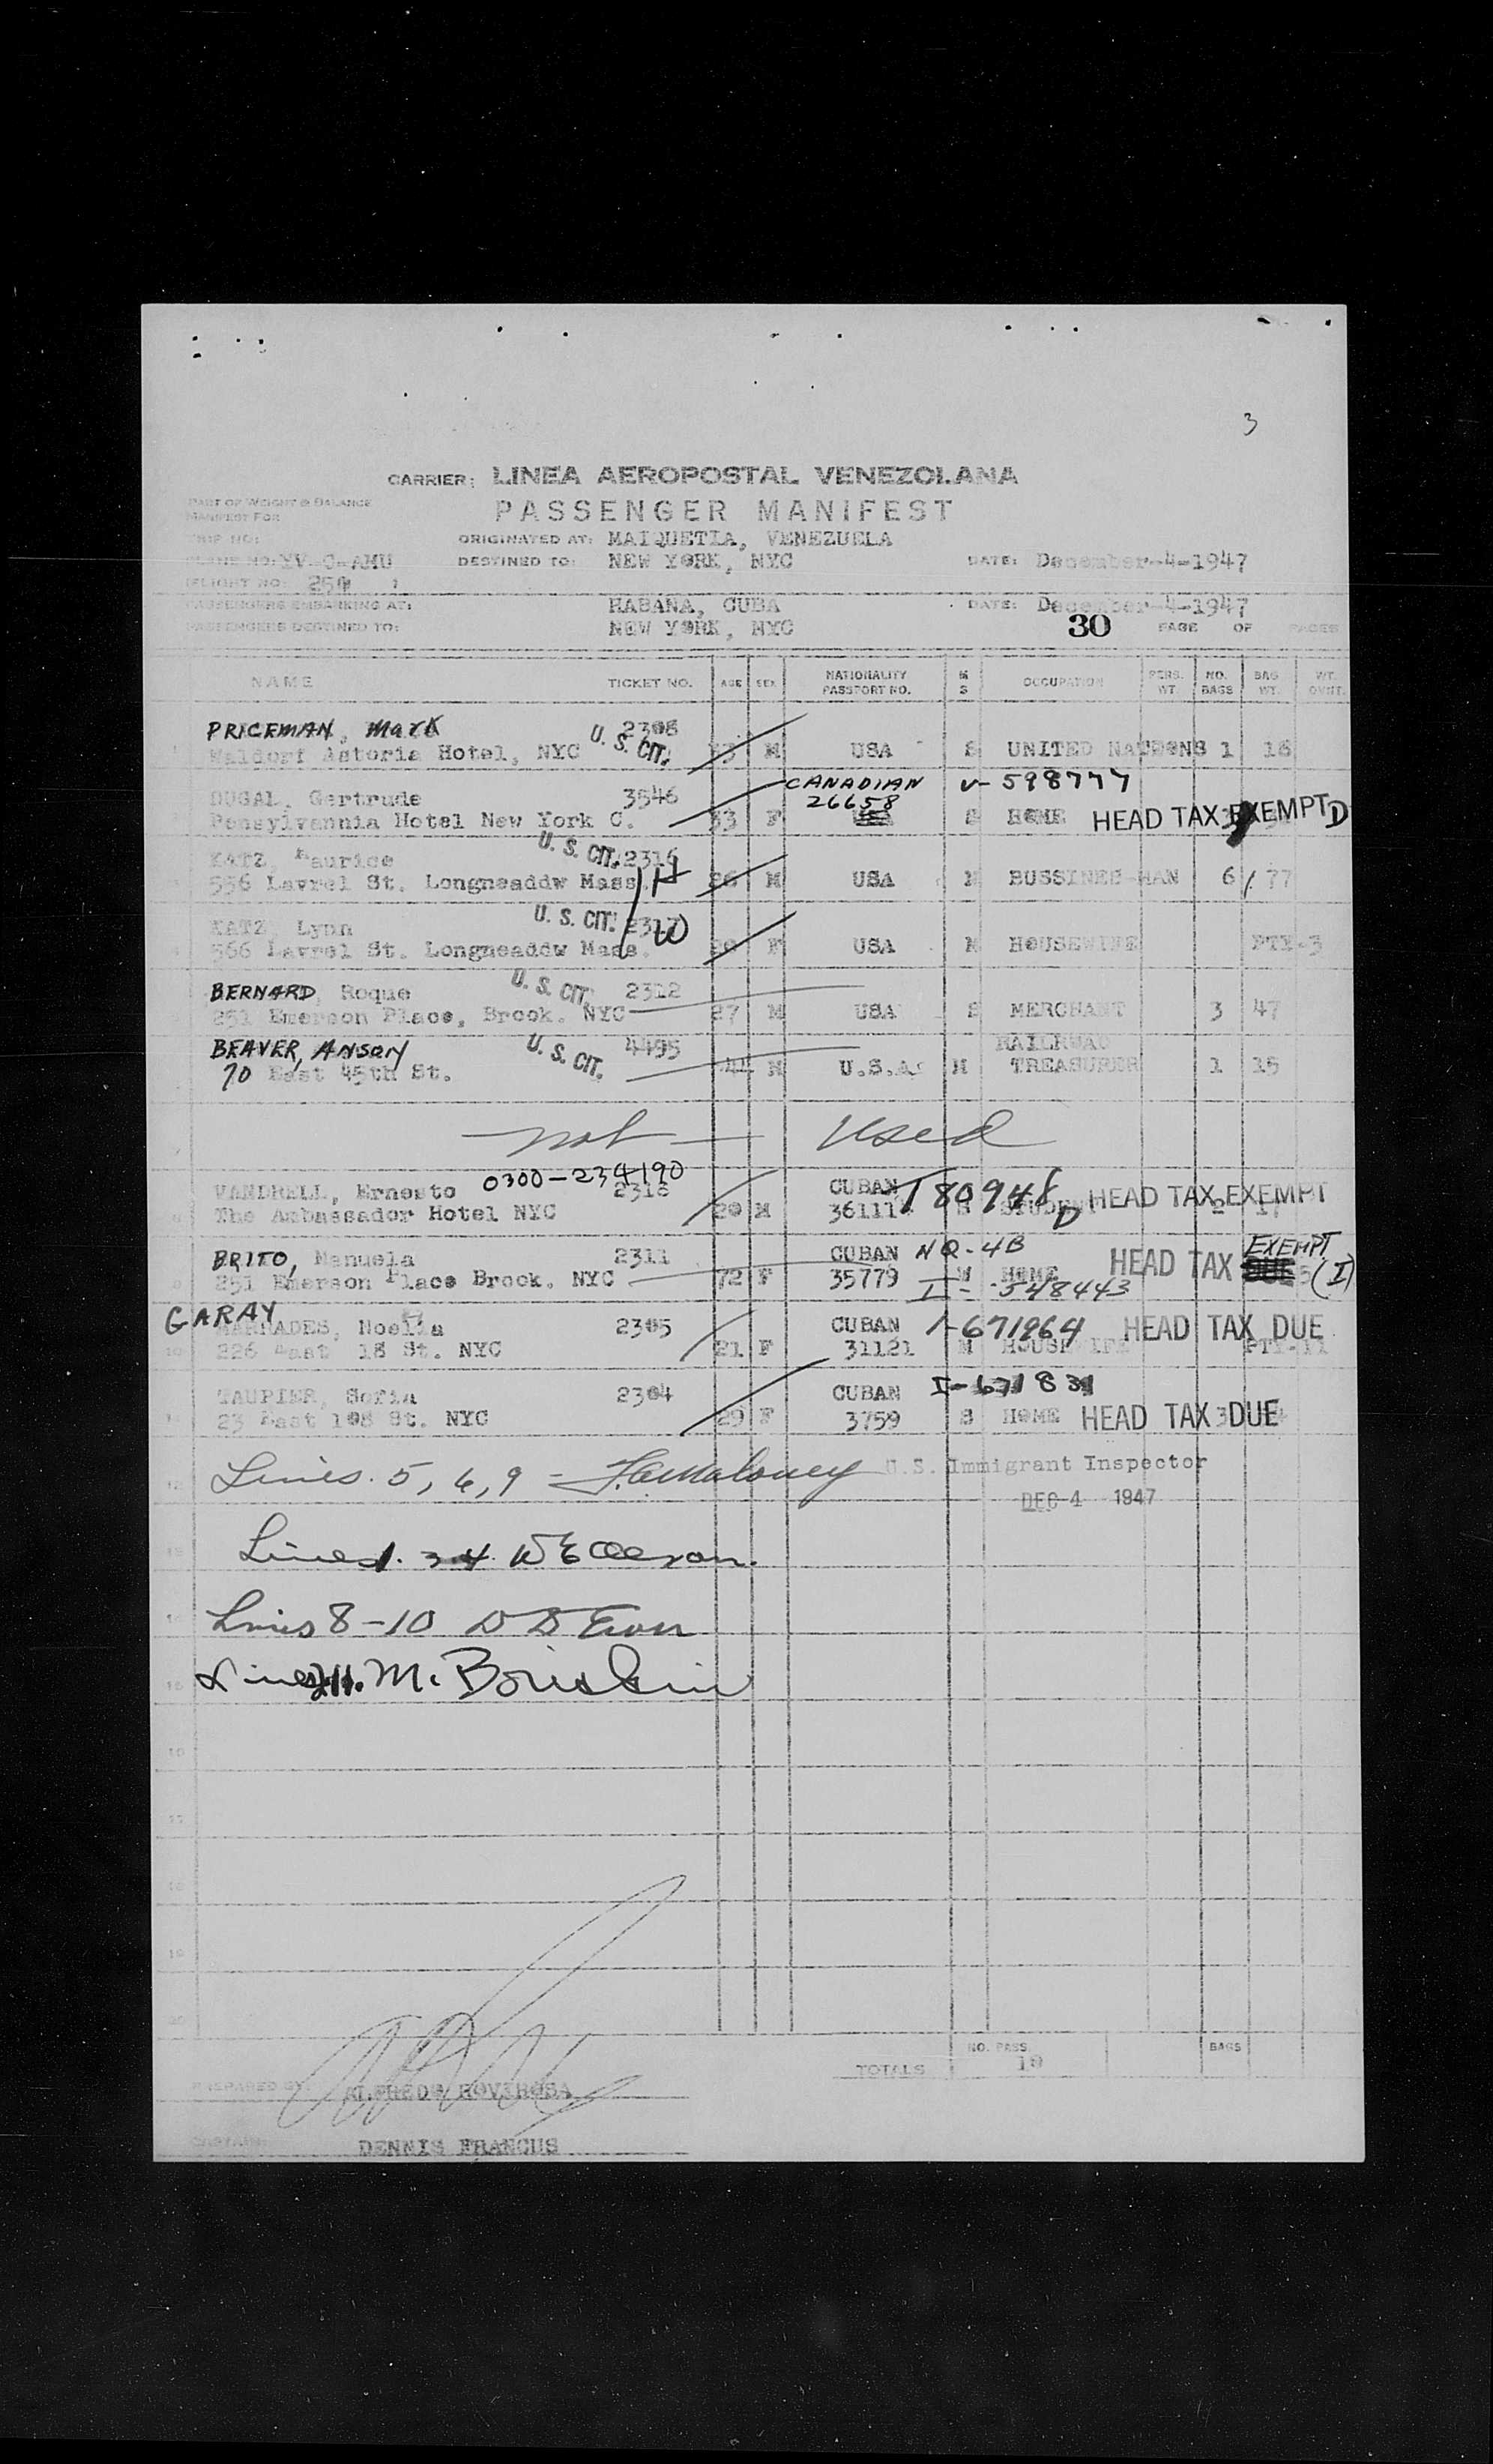 3
CARRIER: LINEA AEROPOSTAL VENEZOLANA
PART OF WEIGHT & BALANCE
MANIFEST FOR
PASSENGER MANIFEST
TRIP NO:
ORIGINATED AT: MAIQUETIA, VENEZUELA
PLANE NO: YV-C-AMU
DESTINED TO: NEW YORK, NYC
DATE: December-4-1947
FLIGHT NO:
PASSENGERS EMBARKING AT: HABANA, CUBA
DATE: December-4-1947
PASSENGERS DESTINED TO: NEW YORK, NYC
30 PAGE OF PAGES
NAME TICKET NO. AGE SEX NATIONALITY PASSPORT NO. M S OCCUPATION PERS. WT. NO. BAGS BAG WT. WT. OVNT.
PRICEMAN, Mark U. S. CIT.
Waldorf Astoria Hotel, NYC M USA S UNITED NATIONS 1 16
DUGAL, Gertrude 3546 CANADIAN V-598777
26658
Pensylvannia Hotel New York C. 33 F S HOME HEAD TAX EXEMPT D
KATZ, Maurice U. S. CIT. 2316
556 Lavrel St. Longneaddw Mass. H 26 M USA M BUSSINES-MAN 6 77
KATZ, Lynn U. S. CIT. 2317
566 Lavrel St. Longneaddw Mass. W F USA M HOUSEWIFE PTY-3
BERNARD, Roque U. S. CIT. 2312
251 Emerson Place, Brook. NYC 27 M USA S MERCHANT 3 47
BEAVER, ANSON U. S. CIT. 4495 RAILROAD
70 East 45th St. 44 M U.S.A. M TREASURER 1 15
not used
0300-234190
VANDRELL, Ernesto 2318 CUBAN
The Ambassador Hotel NYC 20 M 36111 T 80948 D HEAD TAX EXEMPT
BRITO, Manuela 2311 CUBAN NQ-4B HEAD TAX EXEMPT DUE (I)
251 Emerson Place Brook. NYC 72 F 35779 W HOME I-548443
GARAY
Noelia 2305 CUBAN I-671964 HEAD TAX DUE
226 East 18 St. NYC 21 F 31121 M HOUSEWIFE PTY-11
TAUPIER, Sofia 2304 CUBAN
23 East 108 St. NYC 29 F 3759 S HOME HEAD TAX DUE
Lines. 5, 6, 9 = U.S. Immigrant Inspector
DEC 4 1947
Lines 1. 3 4
Lines 8-10
Lines 2 11. M.
TOTALS NO. PASS. 10 BAGS
PREPARED BY: ALFREDO ROVIROSA
CAPTAIN: DENNIS FRANCUS